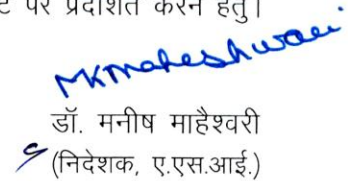 पर प्रदर्शित करने हेतु।
MKMaheshwari
डॉ. मनीष माहैश्वरी
(निदेशक, ए.एस.आई.)